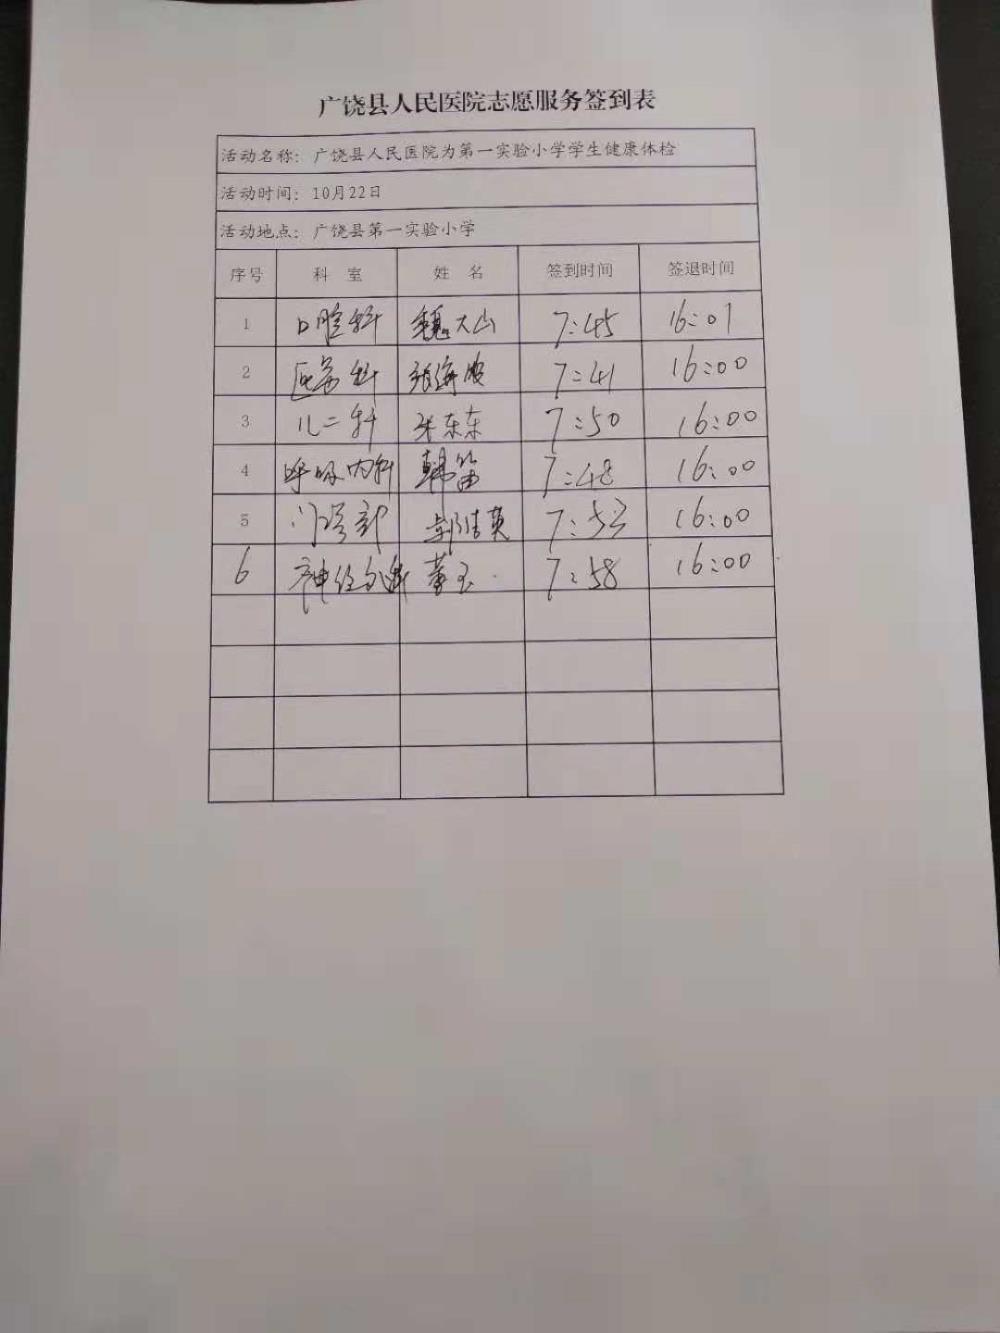 广饶县人民医院志愿服务签到表
活动名称：广饶县人民医院为第一实验小学学生健康体检
活动时间：10月22日
活动地点：广饶县第一实验小学
序号 科 室 姓 名 签到时间 签退时间
1 口腔科 魏大山 7:45 16:01
2 医务科 张海波 7:41 16:00
3 儿二科 张东东 7:50 16:00
4 呼吸内科 韩笛 7:48 16:00
5 门诊部 郭佳英 7:53 16:00
6 神经 董玉 7:58 16:00